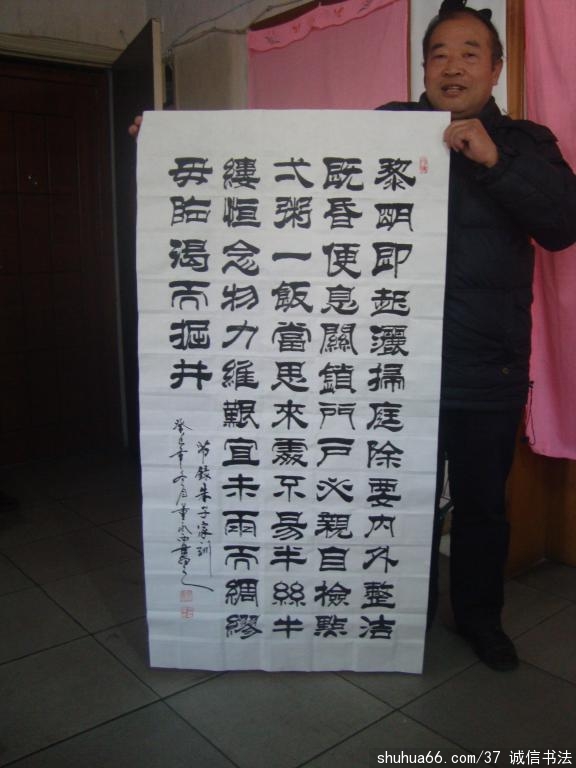 黎明即起灑掃庭除要内外整洁
既昏便息關鎖門戶必親自檢點
弌粥一飯當思來處不易半絲半
縷恒念物力維艱宜未雨而綢繆
毋臨渴而掘井
节録朱子家訓
癸巳年冬月
shuhua66.com/37 诚信书法